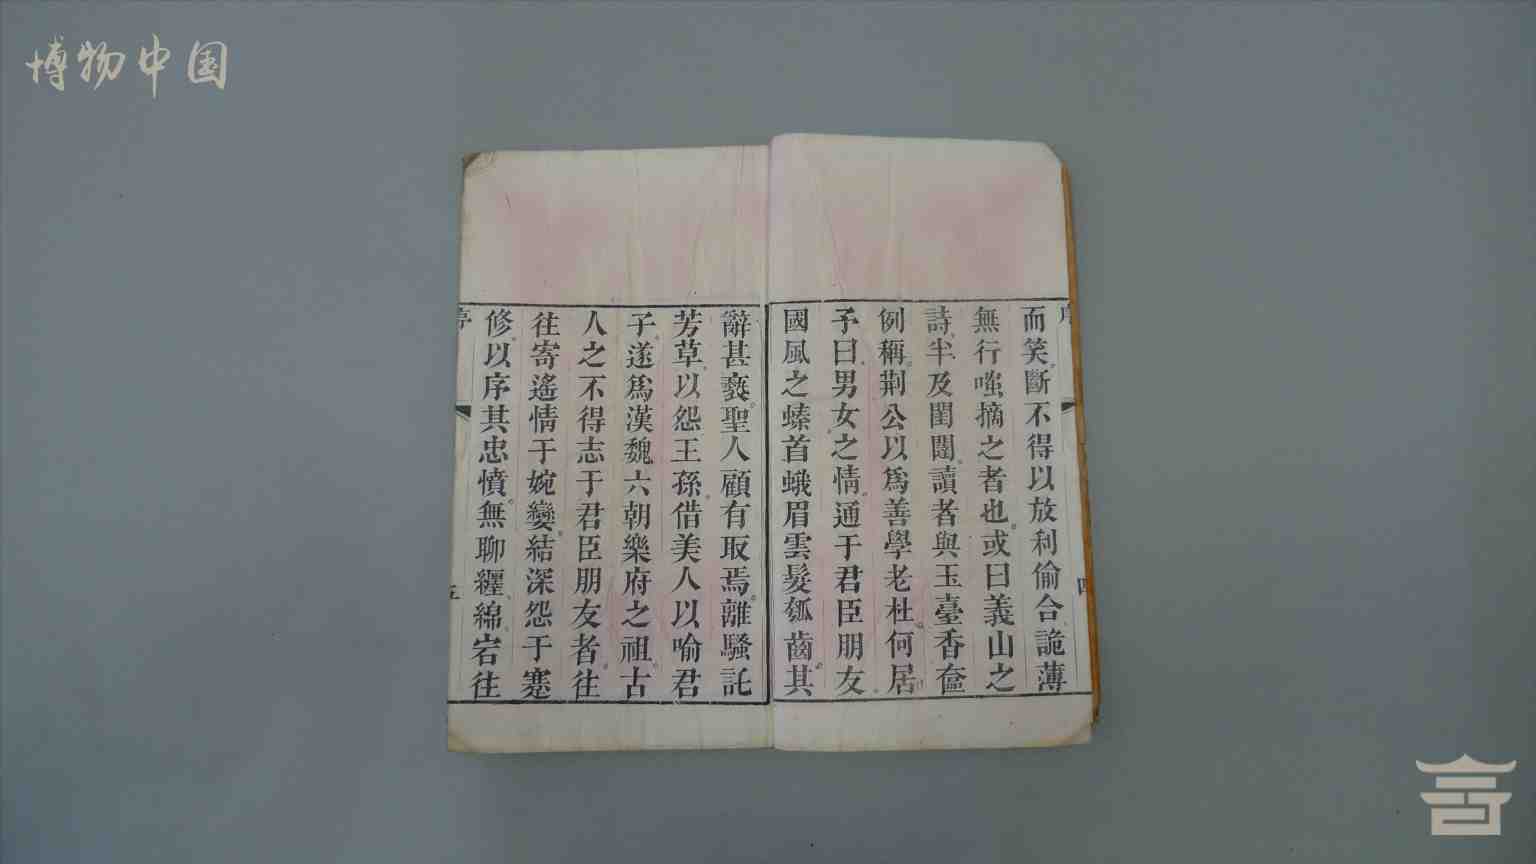 博物中国
序
而笑斷不得以放利偷合詭薄
無行嗤摘之者也或曰義山之
詩半及閨闥讀者與玉臺香奩
例稱荆公以爲善學老杜何居
予曰男女之情通于君臣朋友
國風之螓首蛾眉雲髮瓠齒其
辭甚褻聖人顧有取焉離騷託
芳草以怨王孫借美人以喻君
子遂爲漢魏六朝樂府之祖古
人之不得志于君臣朋友者往
往寄遙情于婉孌結深怨于蹇
修以序其忠憤無聊纒綿宕往
五